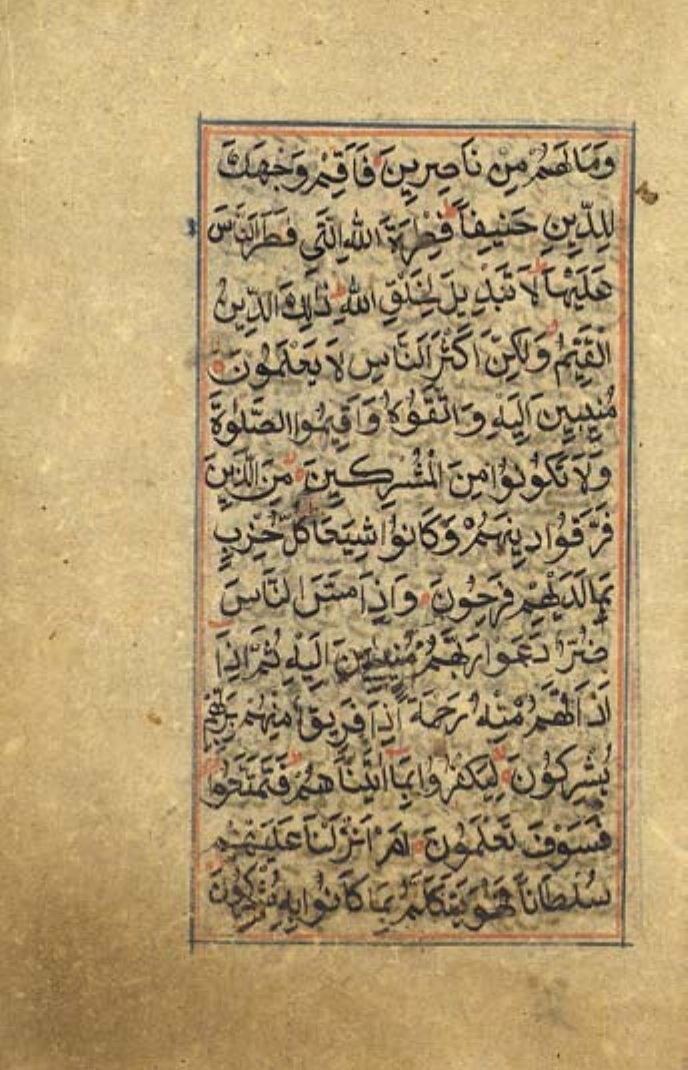 وَمَا لَهُمْ مِنْ نَاصِرِينَ فَاَقِمْ وَجْهَكَ
لِلدِّينِ حَنِيفاً فِطْرَةَ اللهِ الَّتِي فَطَرَ النَّاسَ
عَلَيْهَا لَا تَبْدِيلَ لِخَلْقِ اللهِ ذٰلِكَ الدِّينُ
الْقَيِّمُ وَلٰكِنَّ اَكْثَرَ النَّاسِ لَا يَعْلَمُونَ
مُنِيبِينَ اِلَيْهِ وَاتَّقُوهُ وَاَقِيمُوا الصَّلٰوةَ
وَلَا تَكُونُوا مِنَ الْمُشْرِكِينَ مِنَ الَّذِينَ
فَرَّقُوا دِينَهُمْ وَكَانُوا شِيَعاً كُلُّ حِزْبٍ
بِمَا لَدَيْهِمْ فَرِحُونَ وَاِذَا مَسَّ النَّاسَ
ضُرٌّ دَعَوْا رَبَّهُمْ مُنِيبِينَ اِلَيْهِ ثُمَّ اِذَا
اَذَاقَهُمْ مِنْهُ رَحْمَةً اِذَا فَرِيقٌ مِنْهُمْ بِرَبِّهِمْ
يُشْرِكُونَ لِيَكْفُرُوا بِمَا اٰتَيْنَاهُمْ فَتَمَتَّعُوا
فَسَوْفَ تَعْلَمُونَ اَمْ اَنْزَلْنَا عَلَيْهِمْ
سُلْطَاناً فَهُوَ يَتَكَلَّمُ بِمَا كَانُوا بِهِ يُشْرِكُونَ